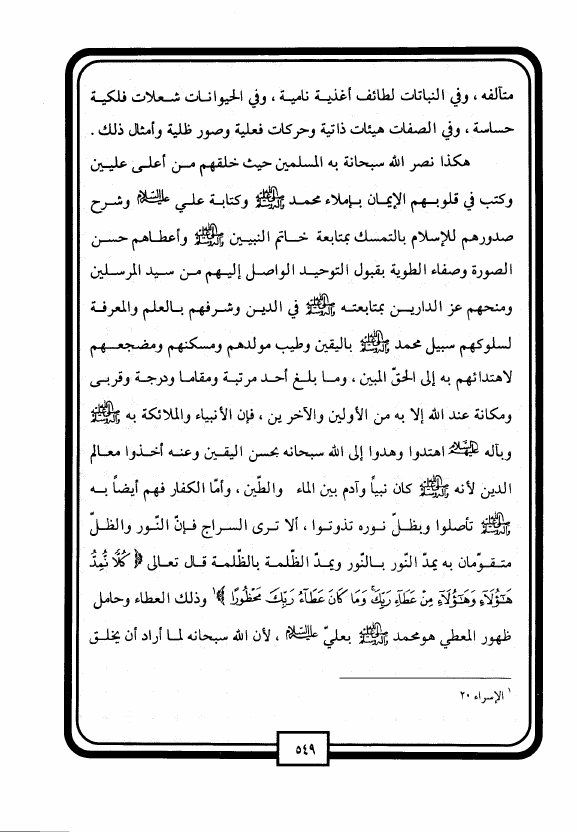 متآلفه ، وفي النباتات لطائف أغذيـة ناميـة ، وفي الحيوانـات شـعلات فلكيـة
حساسة ، وفي الصفات هيئات ذاتية وحركات فعلية وصور ظلية وأمثال ذلك .
هكذا نصر الله سبحانة به المسلمين حيث خلقهم مـن أعلـى عليـين
وكتب في قلوبـهم الإيمـان بـإملاء محمـد ﷺ وكتابـة علـي عليه السلام وشـرح
صدورهم للإسلام بالتمسك بمتابعة خـاتم النبيـين ﷺ وأعطـاهم حسـن
الصورة وصفاء الطوية بقبول التوحيـد الواصل إليـهم مـن سـيد المرسـلين
ومنحهم عز الداريـن بمتابعتـه ﷺ في الديـن وشـرفهم بـالعلم والمعرفـة
لسلوكهم سبيل محمد ﷺ باليقين وطيب مولدهم ومسكنهم ومضجعـهم
لاهتدائهم به إلى الحقّ المبين ، ومـا بلـغ أحـد مرتبـة ومقامـا ودرجـة وقربـى
ومكانة عند الله إلا به من الأولين والآخرين ، فإن الأنبياء والملائكة به ﷺ
وبـآله عليهم السلام اهتدوا وهدوا إلى الله سبحانه بحسن اليقـين وعنـه أخـذوا معـالم
الديـن لأنه ﷺ كان نبياً وآدم بين الماء والطّين ، وأمّا الكفار فهم أيضـاً بـه
ﷺ تأصلوا وبظـلّ نـوره تذوتـوا ، ألا تـرى السـراج فـإنّ النّـور والظـلّ
متـقوّمان به يمدّ النّور بـالنّور ويمـدّ الظّلمـة بالظّلمـة قـال تعـالى ﴿ كُلًّا نُّمِدُّ
هَـٰٓؤُلَآءِ وَهَـٰٓؤُلَآءِ مِنْ عَطَآءِ رَبِّكَ وَمَا كَانَ عَطَآءُ رَبِّكَ مَحْظُورًا ﴾¹ وذلك العطاء وحامل
ظهور المعطي هومحمد ﷺ بعليّ عليه السلام ، لأن الله سبحانه لمـا أراد أن يخلـق
¹ الإسراء ٢٠
٥٤٩